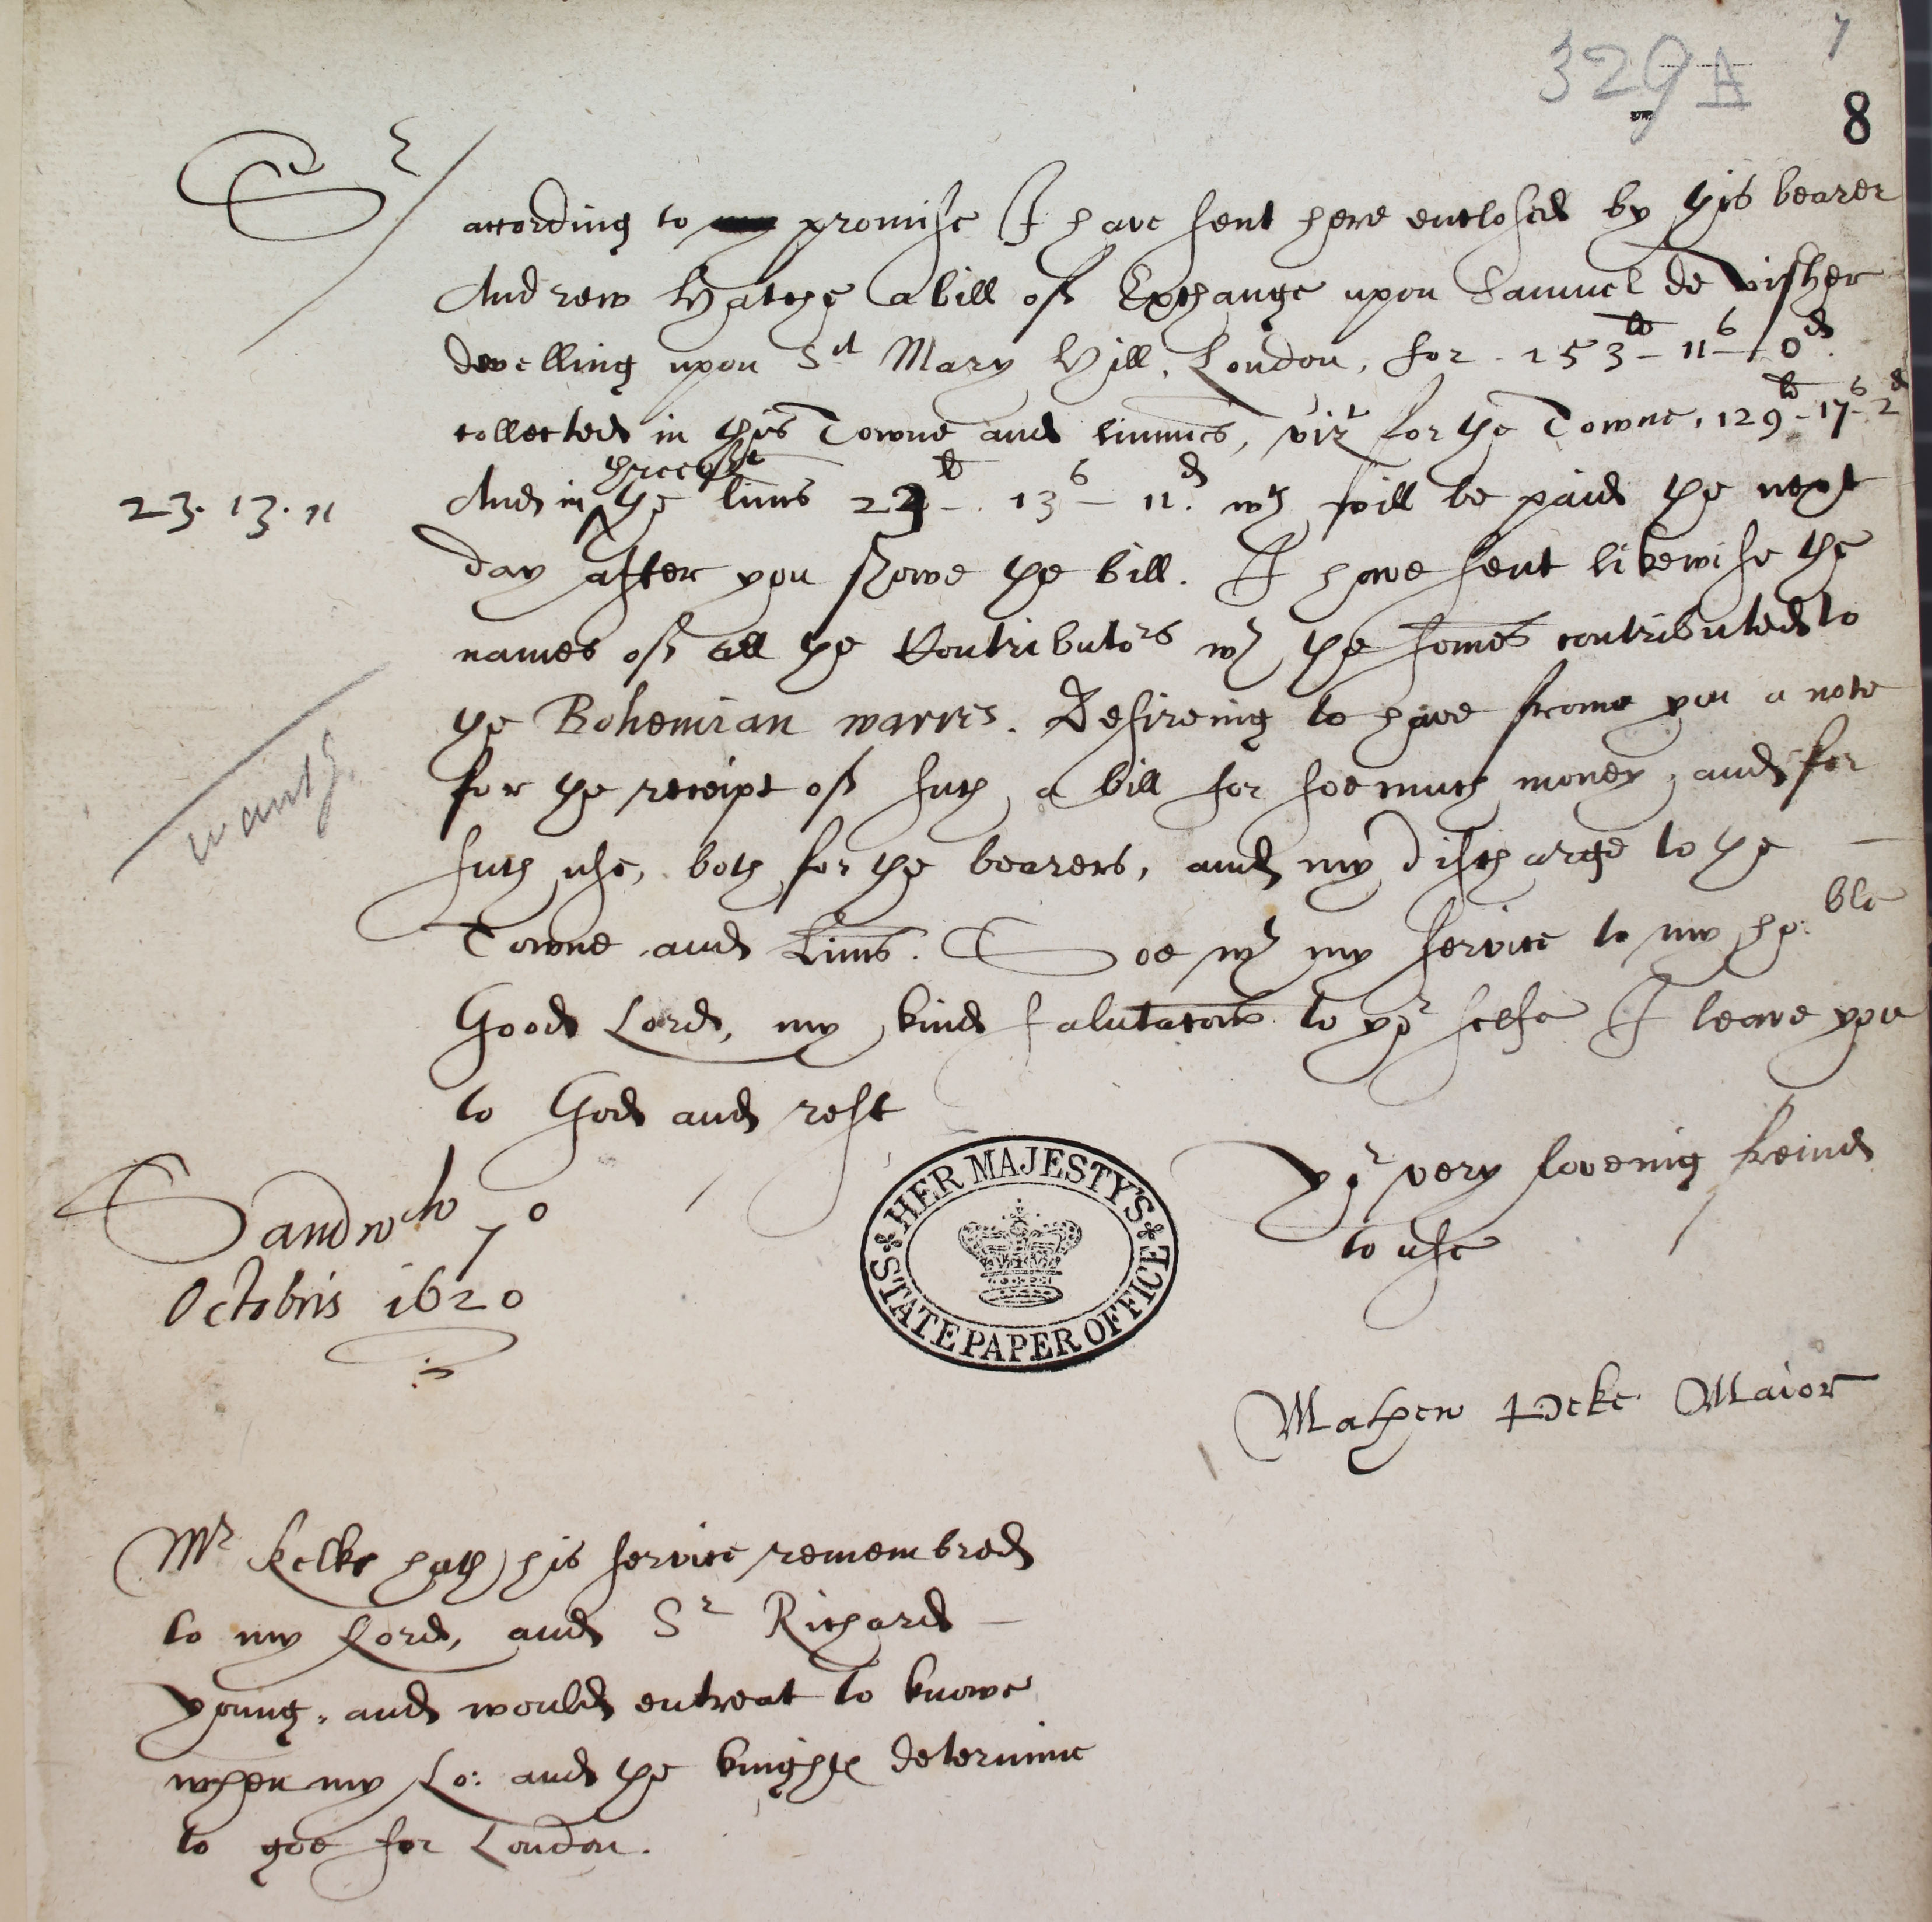 329A
7
8
Sr
according to my promise I have sent here enclosed by this bearer
Andrew Hatche a bill off Exchange upon Samuel de visher
dwelling upon St Mary Hill, London, for 153lb – 11s – 0d.
collected in this Towne and limmes, vizt for the Towne, 129lb – 17s – 2d
And in the lims 23lb – 13s – 11d. wch will be paid the next
23. 13. 11
day after you showe the bill. I have sent likewise the
names off all the Contributors wth the somes contributed to
the Bohemian warres. Desireing to have frome you a note
for the receipt off such a bill for soe much money, and for
such use, both for the bearers, and my discharge to the –
wants
Towne and Lims. Soe wth my service to my ho:ble
Good Lord, my kind salutacons to yor selfe I leave you
to God and rest
Yor very loveing freind
to use
Sandwch 7o
Octobris 1620
HER MAJESTY'S STATE PAPER OFFICE
Mathew Peke Maior
Mr Kelke hath his service remembred
to my Lord, and Sr Richard –
Young, and would entreat to knowe
when my Lo: and the knights determine
to goe for London.